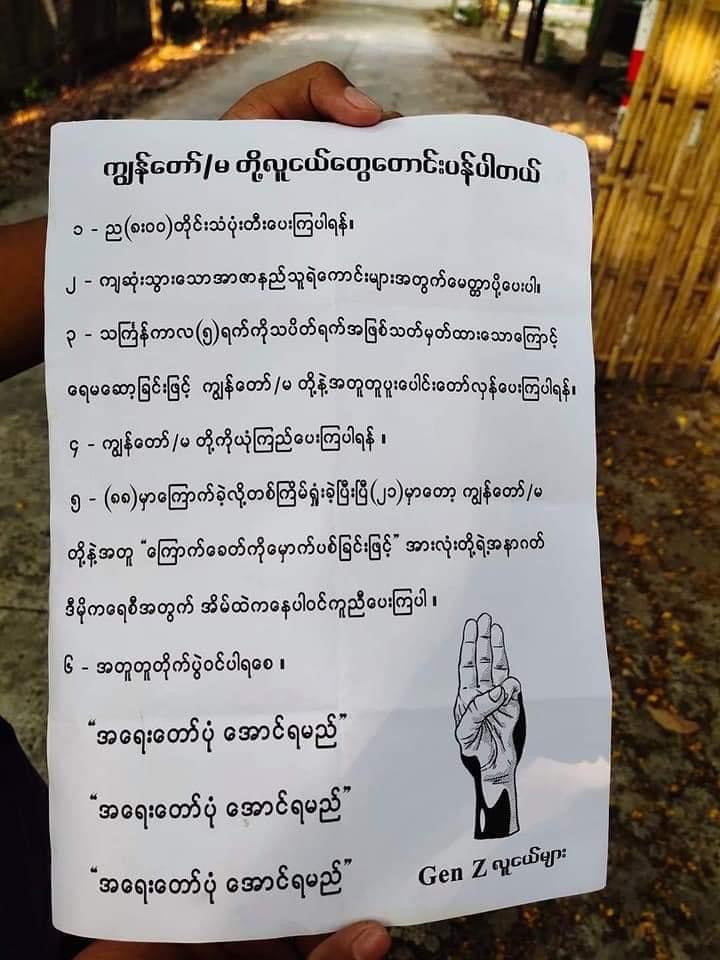 ကျွန်တော်/မ တို့လူငယ်တွေတောင်းပန်ပါတယ်
၁ - ည(၈း၀၀)တိုင်းသံပုံးတီးပေးကြပါရန်။
၂ - ကျဆုံးသွားသောအာဇာနည်သူရဲကောင်းများအတွက်မေတ္တာပို့ပေးပါ။
၃ - သင်္ကြန်ကာလ(၅)ရက်ကိုသပိတ်ရက်အဖြစ်သတ်မှတ်ထားသောကြောင့်
ရေမဆော့ခြင်းဖြင့် ကျွန်တော်/မ တို့နဲ့အတူတူပူးပေါင်းတော်လှန်ပေးကြပါရန်။
၄ - ကျွန်တော်/မ တို့ကိုယုံကြည်ပေးကြပါရန် ။
၅ - (၈၈)မှာကြောက်ခဲ့လို့တစ်ကြိမ်ရှုံးခဲ့ပြီးပြီ(၂၁)မှာတော့ ကျွန်တော်/မ
တို့နဲ့အတူ “ကြောက်ခေတ်ကိုမှောက်ပစ်ခြင်းဖြင့်” အားလုံးတို့ရဲ့အနာဂတ်
ဒီမိုကရေစီအတွက် အိမ်ထဲကနေပါဝင်ကူညီပေးကြပါ ။
၆ - အတူတူတိုက်ပွဲဝင်ပါရစေ ။
“အရေးတော်ပုံ အောင်ရမည်”
“အရေးတော်ပုံ အောင်ရမည်”
“အရေးတော်ပုံ အောင်ရမည်”
Gen Z လူငယ်များ